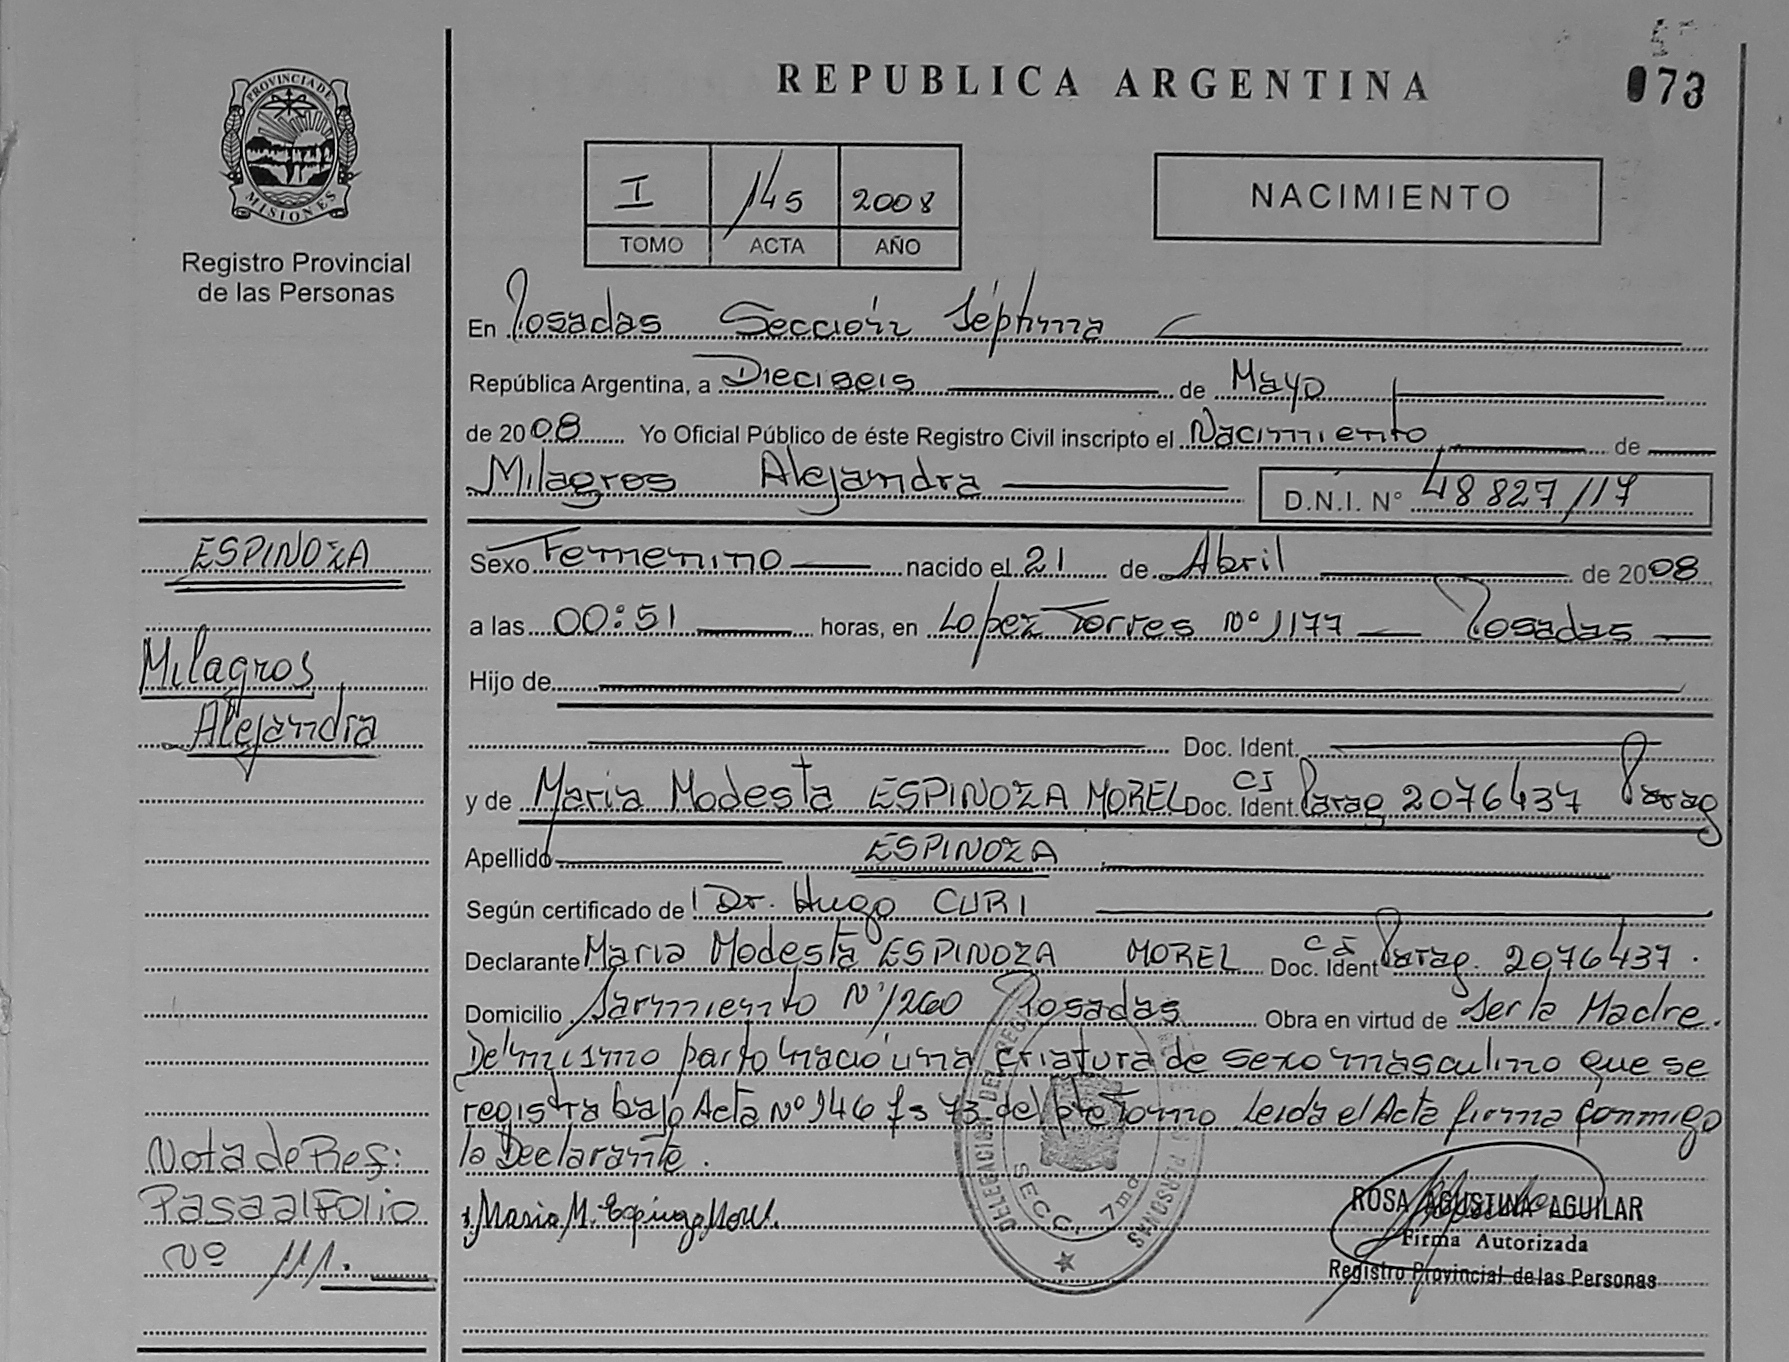 REPUBLICA ARGENTINA
073
PROVINCIA DE
MISIONES
Registro Provincial
de las Personas
I 145 2008
TOMO ACTA AÑO
NACIMIENTO
En Posadas Sección Séptima
República Argentina, a Dieciseis de Mayo
de 2008 Yo Oficial Público de éste Registro Civil inscripto el Nacimiento de
Milagros Alejandra D.N.I. Nº 48827117
ESPINOZA
Milagros
Alejandra
Sexo Femenino nacido el 21 de Abril de 2008
a las 00:51 horas, en Lopez Torres Nº 1177 Posadas
Hijo de
Doc. Ident.
y de Maria Modesta ESPINOZA MOREL Doc. Ident. CI Parag 2076437 Parag
Apellido ESPINOZA
Según certificado de Dr. Hugo CURI
Declarante Maria Modesta ESPINOZA MOREL Doc. Ident CI Parag. 2076437.
Domicilio Sarmiento Nº 1260 Posadas Obra en virtud de Ser la Madre.
Del mismo parto nació una criatura de sexo masculino que se
registra bajo Acta Nº 146 fs 73 del pte Tomo Leida el Acta firma conmigo
la Declarante.
Nota de Ref:
Pasa al Folio
Nº 111.
Maria M. Espinoza Morel.
SECC. 7ma
ROSA AGUSTINA AGUILAR
Firma Autorizada
Registro Provincial de las Personas